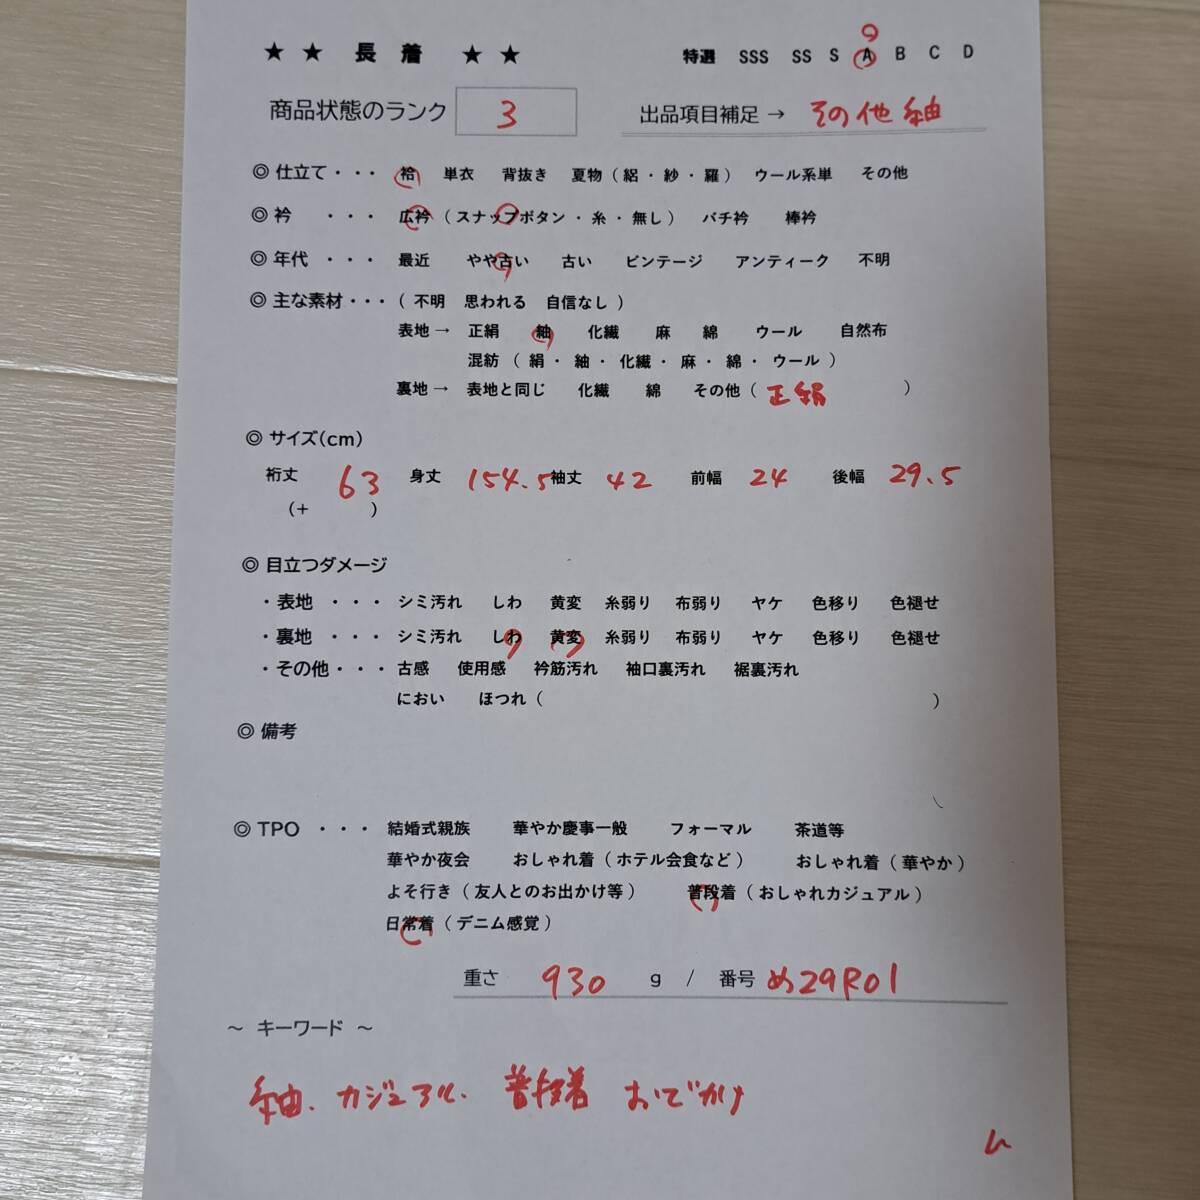 ★ ★ 長 着 ★ ★ 特選 SSS SS S A B C D
商品状態のランク 3 出品項目補足 → その他 紬
◎ 仕立て・・・ 袷 単衣 背抜き 夏物 ( 絽 ・ 紗 ・ 羅 ) ウール系単 その他
◎ 衿 ・・・ 広衿 ( スナップボタン ・ 糸 ・ 無し ) バチ衿 棒衿
◎ 年代 ・・・ 最近 やや古い 古い ビンテージ アンティーク 不明
◎ 主な素材・・・ ( 不明 思われる 自信なし )
表地 → 正絹 紬 化繊 麻 綿 ウール 自然布
混紡 ( 絹 ・ 紬 ・ 化繊 ・ 麻 ・ 綿 ・ ウール )
裏地 → 表地と同じ 化繊 綿 その他 ( 正絹 )
◎ サイズ(cm)
裄丈 63 身丈 154.5 袖丈 42 前幅 24 後幅 29.5
(+ )
◎ 目立つダメージ
・表地 ・・・ シミ汚れ しわ 黄変 糸弱り 布弱り ヤケ 色移り 色褪せ
・裏地 ・・・ シミ汚れ しわ 黄変 糸弱り 布弱り ヤケ 色移り 色褪せ
・その他・・・ 古感 使用感 衿筋汚れ 袖口裏汚れ 裾裏汚れ
におい ほつれ ( )
◎ 備考
◎ TPO ・・・ 結婚式親族 華やか慶事一般 フォーマル 茶道等
華やか夜会 おしゃれ着 ( ホテル会食など ) おしゃれ着 ( 華やか )
よそ行き ( 友人とのお出かけ等 ) 普段着 ( おしゃれカジュアル )
日常着 ( デニム感覚 )
重さ 930 g / 番号 め29R01
～ キーワード ～
紬、カジュアル、普段着 おでかけ